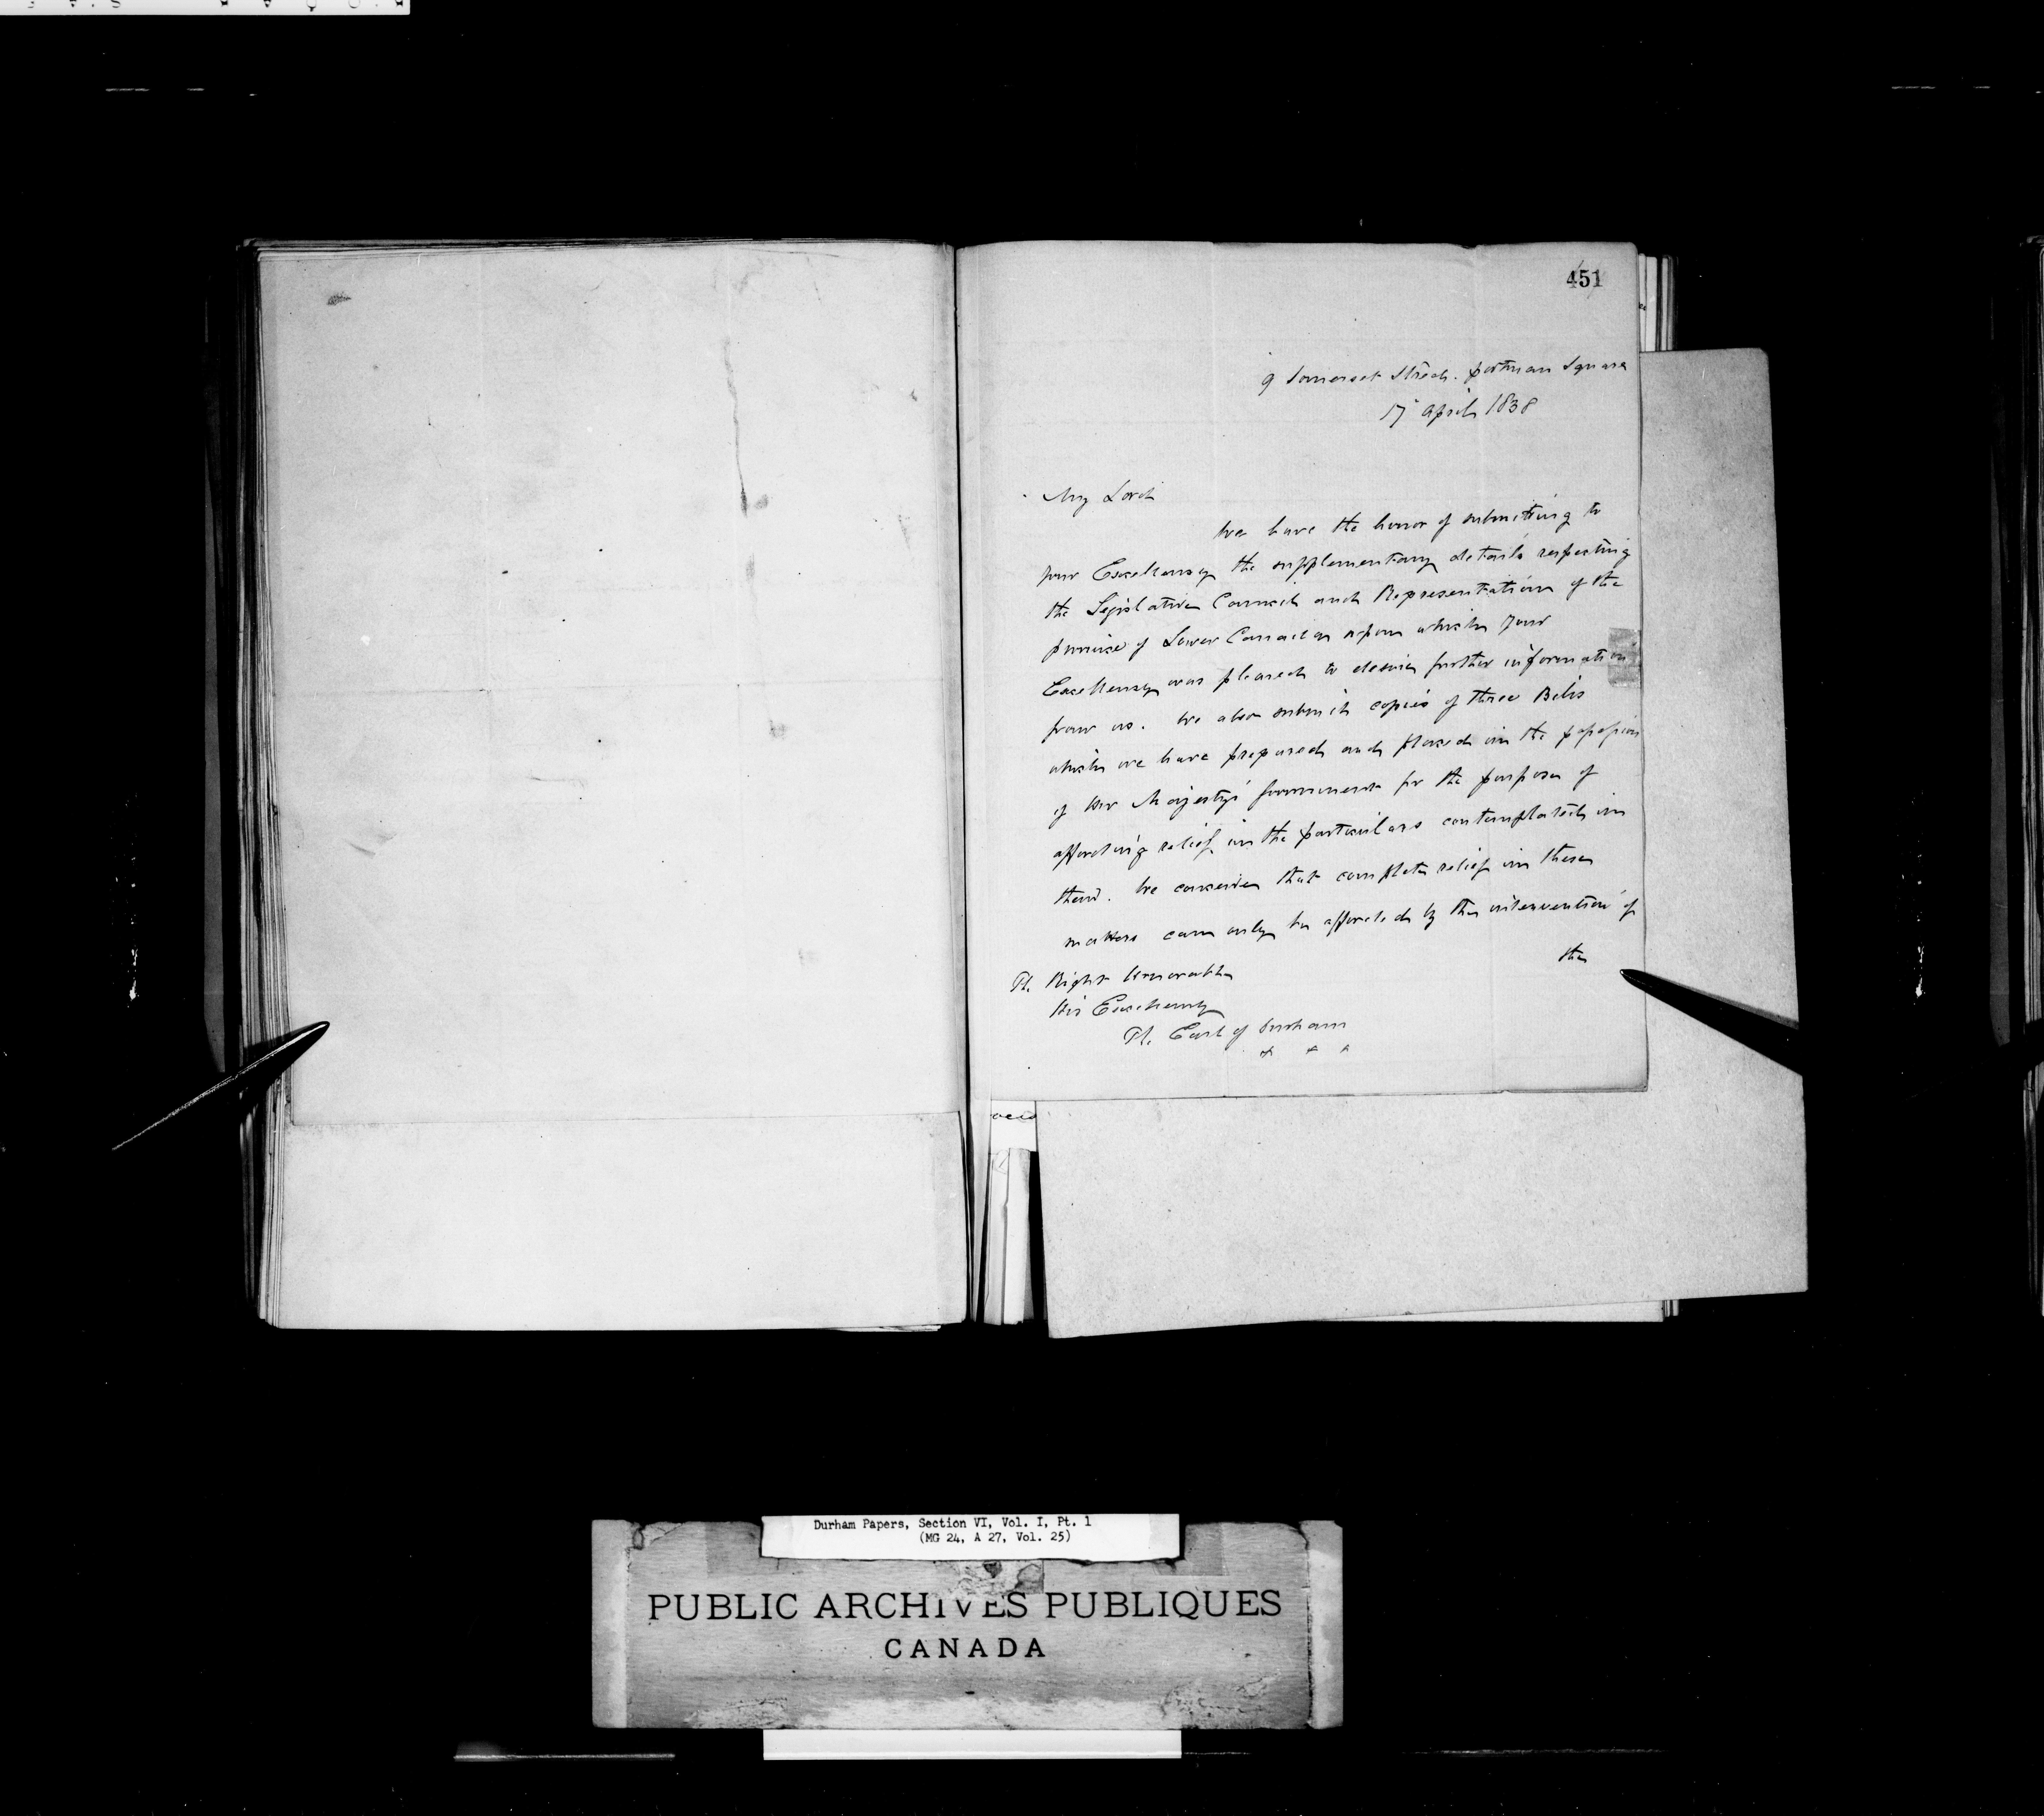 451
9 Somerset Street. Portman Square
17 April 1838
My Lord
We have the honor of submitting to
your Excellency the supplementary details respecting
the Legislative Council and Representation of the
province of Lower Canada upon which your
Excellency was pleased to desire further information
from us. We also submit copies of three Bills
which we have prepared and placed in the possession
of Her Majesty's Government for the purpose of
affording relief in the particulars contemplated in
them. We conceive that complete relief in these
matters can only be afforded by the intervention of
the
The Right Honorable
His Excellency
The Earl of Durham
Durham Papers, Section VI, Vol. I, Pt. 1
(MG 24, A 27, Vol. 25)
PUBLIC ARCHIVES PUBLIQUES
CANADA